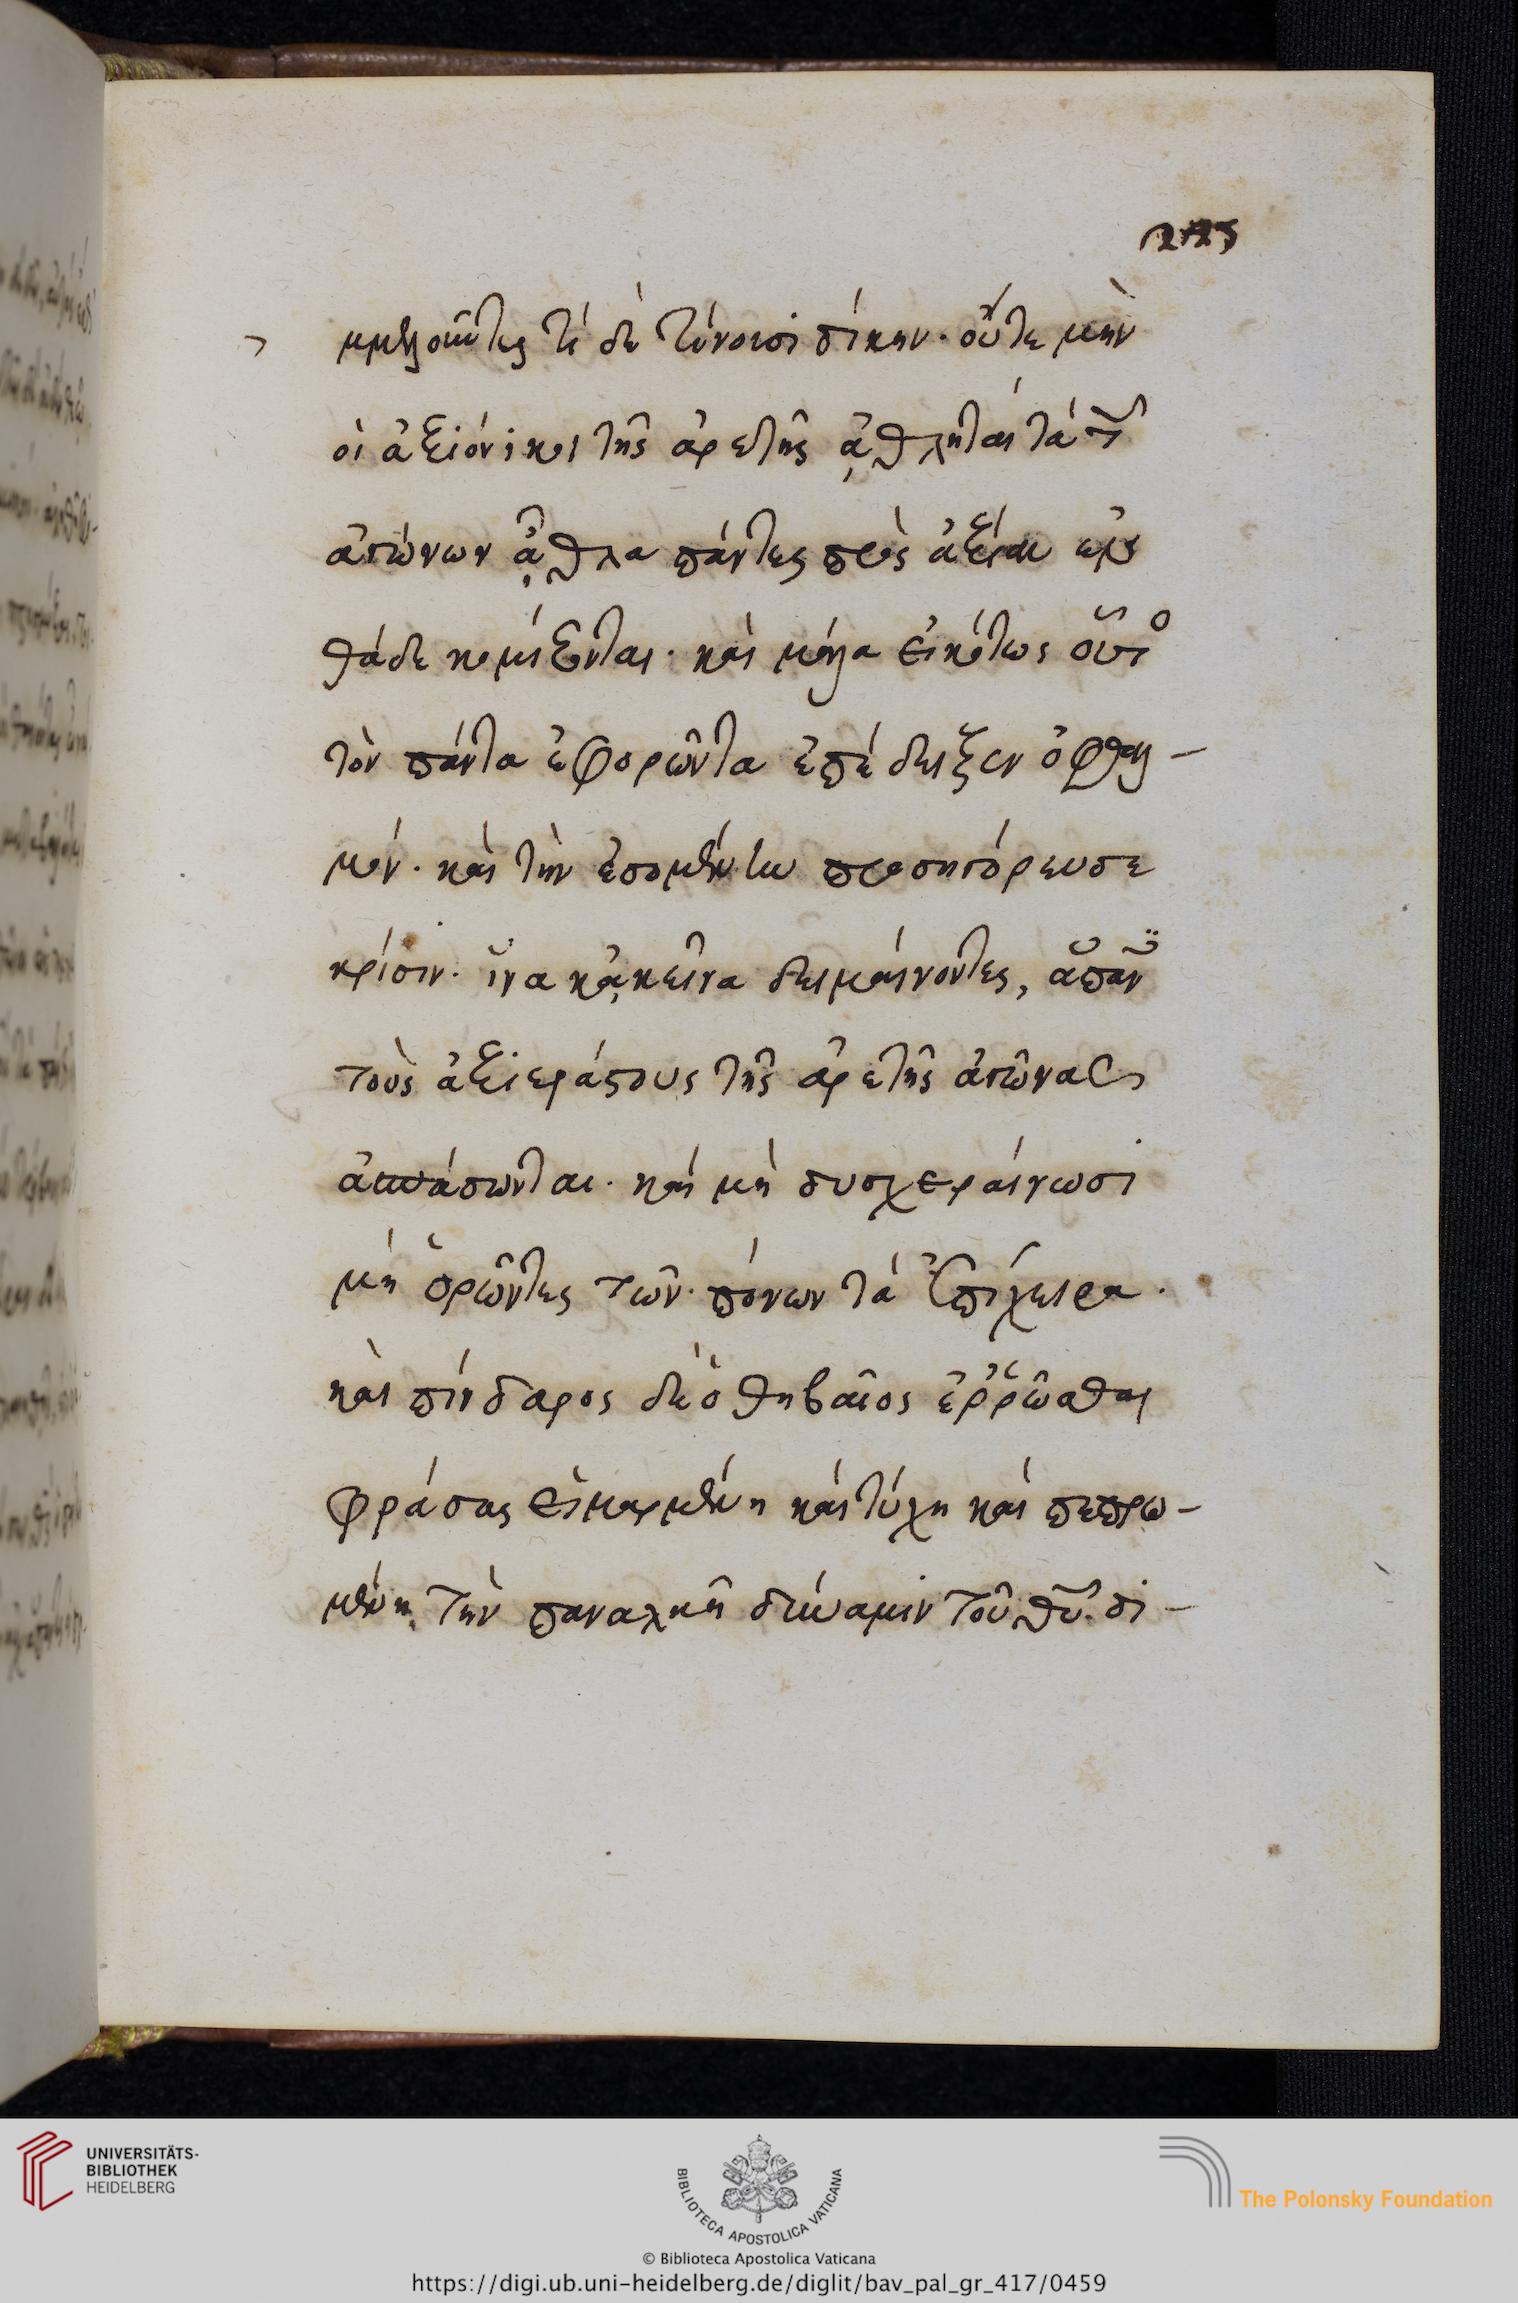 225
μμελοῦντες τήνδε τίνουσι δίκην. οὔτε μὴν
οἱ ἀξιόνικοι τῆς ἀρετῆς ἀθληταὶ τὰ τῶν
ἀγώνων ἆθλα πάντες πρὸς ἀξίαν ἐν
θάδε κομίζονται. καὶ μάλα εἰκότως οὗτος
τὸν πάντα ἐφορῶντα ἐπέδειξεν ὀφθαλ-
μόν. καὶ τὴν ἐσομένην προσηγόρευσε
κρίσιν. ἵνα κἀκεῖνα δειμαίνοντες, ἅπαντες
τοὺς ἀξιεράστους τῆς ἀρετῆς ἀγῶνας
ἀσπάσωνται. καὶ μὴ δυσχεραίνωσι
μὴ ὁρῶντες τῶν πόνων τὰ ἐπίχειρα.
καὶ πίνδαρος δὲ ὁ θηβαῖος ἐρρῶσθαι
φράσας εἱμαρμένῃ καὶ τύχῃ καὶ πεπρω-
μένῃ, τὴν παναλκῆ δύναμιν τοῦ θῦ δι-
UNIVERSITÄTS-
BIBLIOTHEK
HEIDELBERG
BIBLIOTECA APOSTOLICA VATICANA
The Polonsky Foundation
© Biblioteca Apostolica Vaticana
https://digi.ub.uni-heidelberg.de/diglit/bav_pal_gr_417/0459